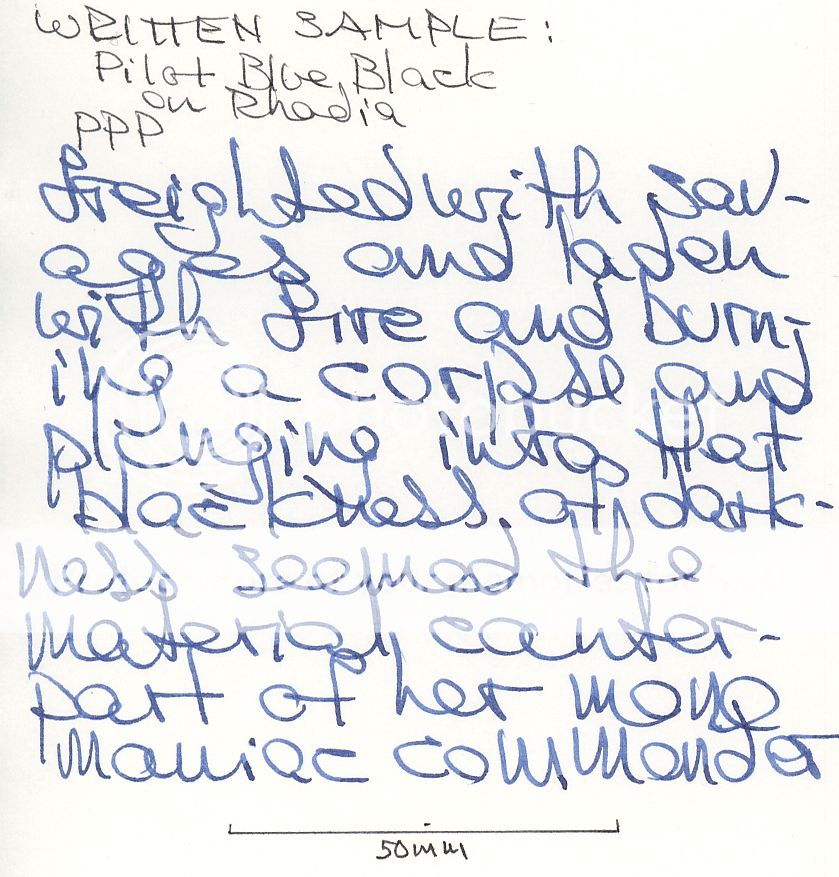 WRITTEN SAMPLE:
Pilot Blue Black
on Rhodia
PPP
freighted with sav-
ages and laden
with fire and burn-
ing a corpse and
plunging into that
blackness of dark-
ness seemed the
material counter-
part of her mono
maniac commander
50mm